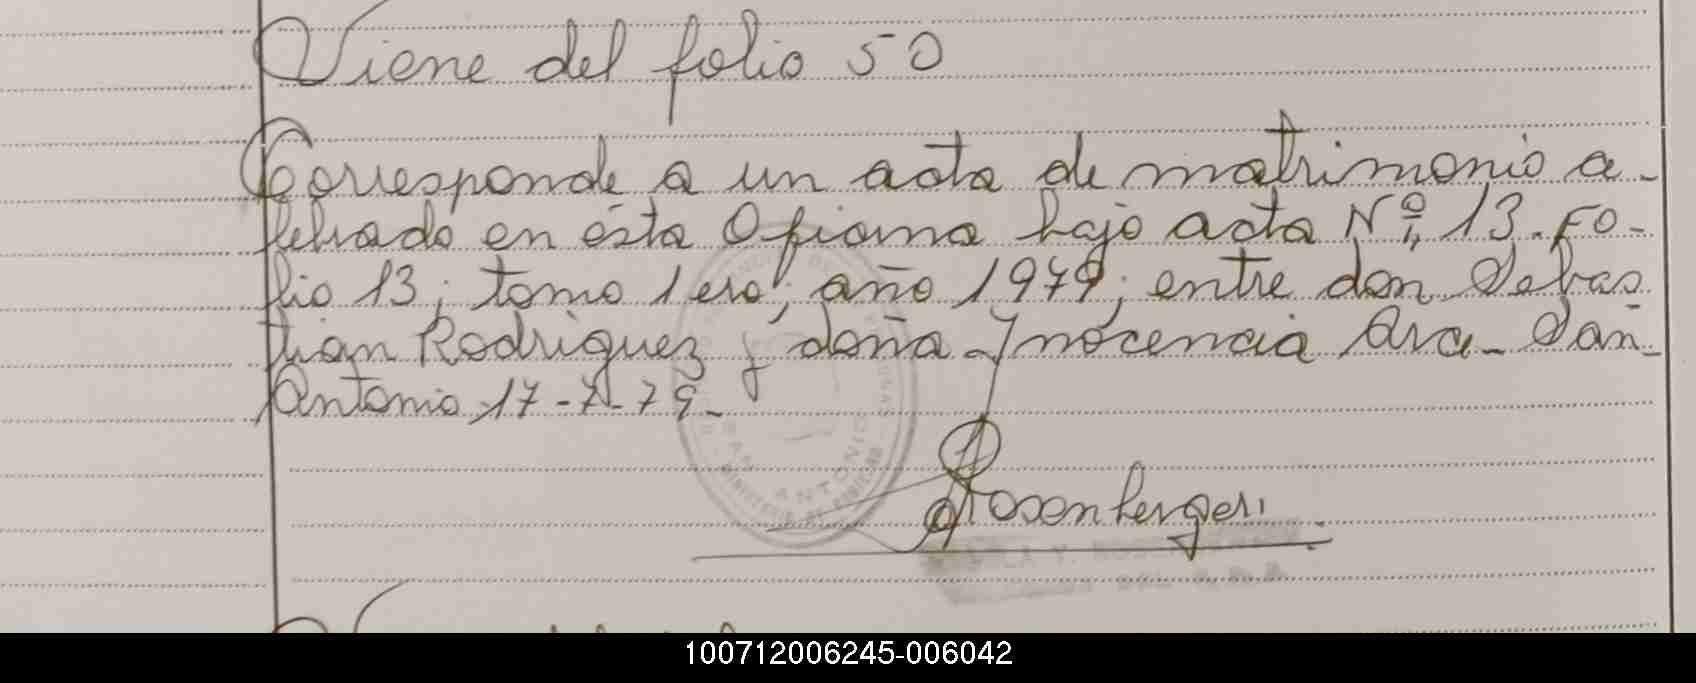 Viene del folio 50
Corresponde a un acta de matrimonio ce-
lebrado en ésta Oficina bajo acta Nº 13. Fo-
lio 13; tomo 1ero; año 1979; entre don Sebas
tian Rodriguez y doña Inocencia Ara- San
Antonio 17-7-79.-
SAN ANTONIO
Rosenberger.
100712006245-006042